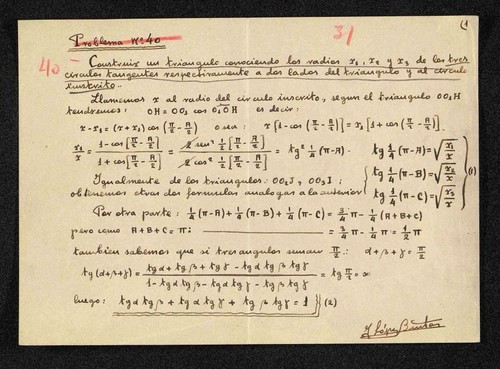 (1
Problema Nº 40
31
40- Construir un triangulo conociendo los radios r₁, r₂ y r₃ de los tres
circulos tangentes respectivamente a dos lados del triangulo y al circulo
inscrito.-
Llamemos r al radio del circulo inscrito, segun el triangulo OO₁H
tendremos: OH = OO₁ cos O₁OH es decir:
r - r₁ = (r + r₁) cos (π/2 - A/2) o sea: r [1 - cos (π/2 - A/2)] = r₁ [1 + cos (π/2 - A/2)].
r₁/r = (1 - cos [π/2 - A/2]) / (1 + cos [π/2 - A/2]) = (2 sen² ½ [π/2 - A/2]) / (2 cos² ½ [π/2 - A/2]) = tg² ¼ (π - A). tg ¼ (π - A) = √(r₁/r)
Igualmente de los triangulos: OO₂J, OO₃I: tg ¼ (π - B) = √(r₂/r) (1)
obtenemos otras dos formulas analogas a la anterior tg ¼ (π - C) = √(r₃/r)
Por otra parte: ¼ (π - A) + ¼ (π - B) + ¼ (π - C) = ¾ π - ¼ (A + B + C)
pero como A + B + C = π: = ¾ π - ¼ π = ½ π
tambien sabemos que si tres angulos suman π/2: α + β + γ = π/2
tg (α + β + γ) = (tg α + tg β + tg γ - tg α tg β tg γ) / (1 - tg α tg β - tg α tg γ - tg β tg γ) = tg π/2 = ∞
luego: tg α tg β + tg α tg γ + tg β tg γ = 1 } (2)